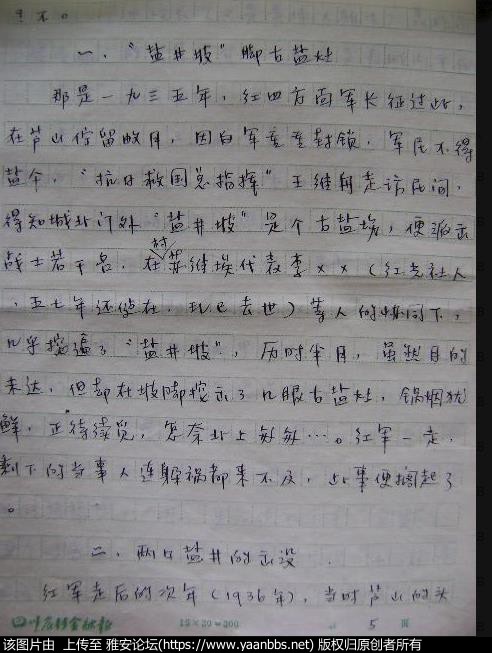 一、“盐井坡”脚古盐灶
那是一九三五年，红四方面军长征过此，
在芦山停留数月，因白军重重封锁，军民不得
盐个，“抗日救国总指挥”王维舟走访民间，
得知城北门外“盐井坡”是个古盐埃，便派出
战士若干名，在苏维埃代表李××（红光社人
，五七年还健在，现已去世）等人的协同下，
几乎挖遍了“盐井坡”，历时半月，虽然目的
未达，但却在坡脚挖出了几眼古盐灶，锅烟犹
鲜，正待续觅，怎奈北上匆匆…。红军一走，
剩下的当事人连躲祸都来不及，此事便搁起了
。
二、两口盐井的出没
红军走后的次年（1936年），当时芦山的头
15×20=300
5 页
该图片由 上传至 雅安论坛(https://www.yaanbbs.net) 版权归原创者所有